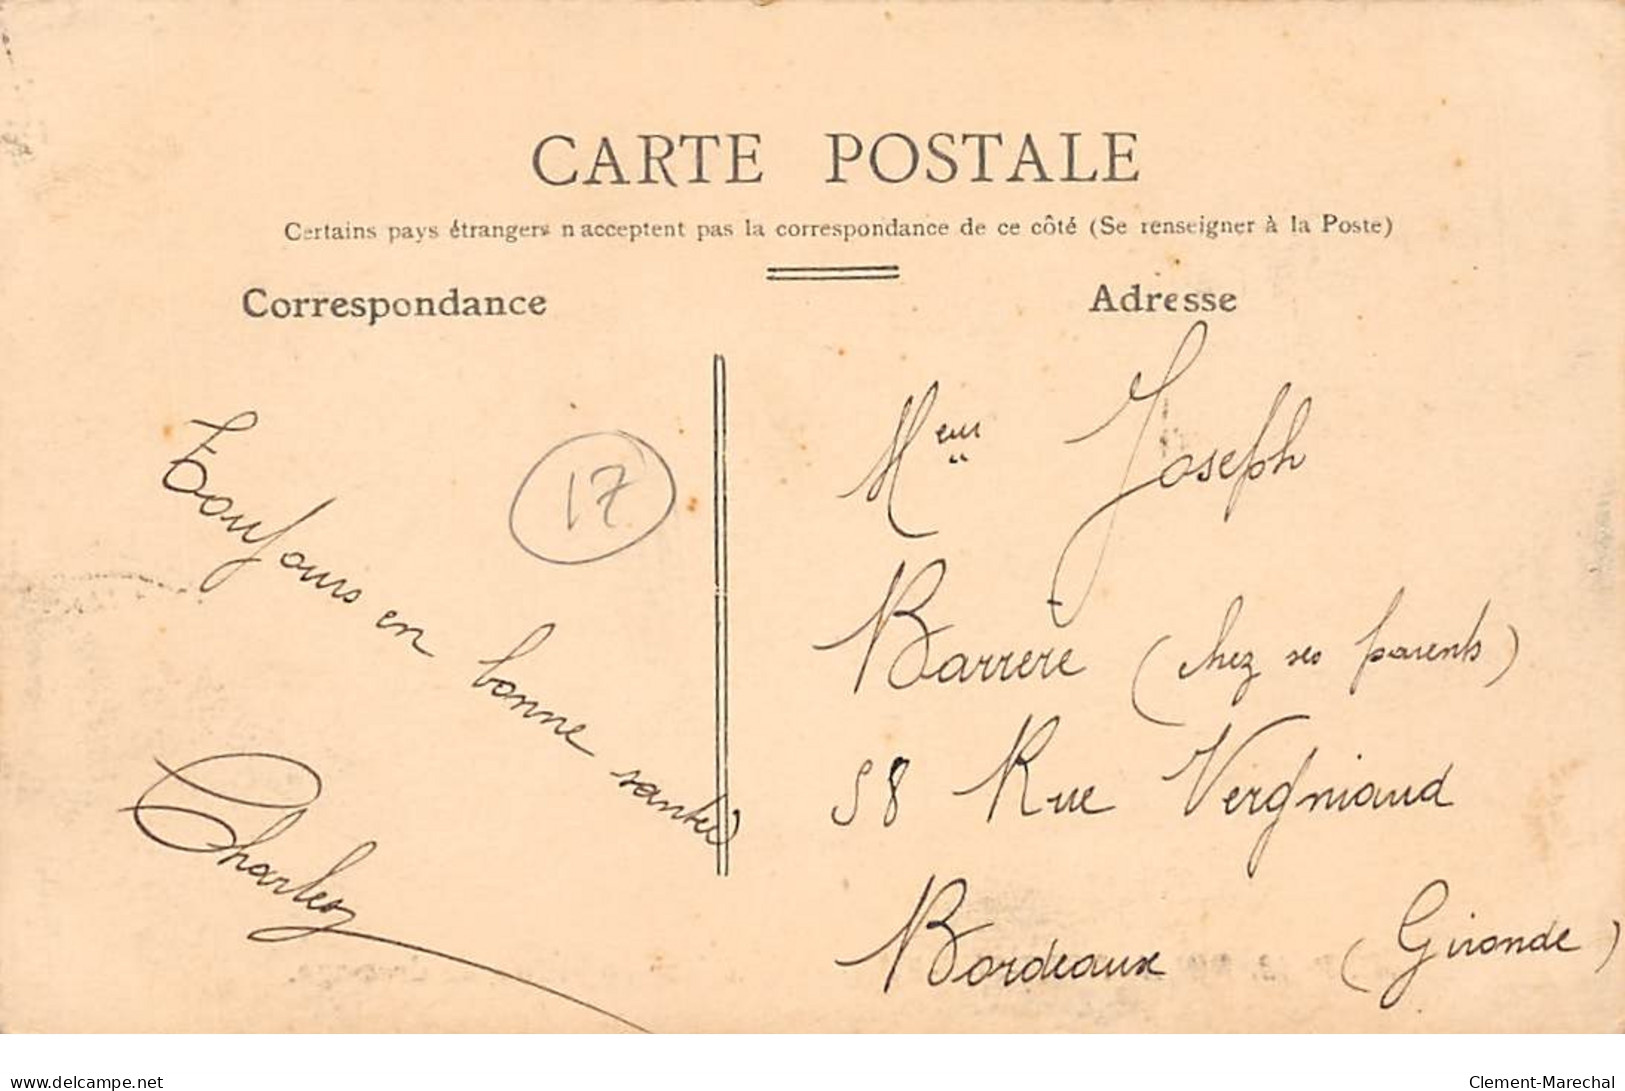 CARTE POSTALE
Certains pays étrangers n'acceptent pas la correspondance de ce côté (Se renseigner à la Poste)
Correspondance
Adresse
17
Toujours en bonne santé
Charles
Meur Joseph
Barrère (chez ses parents)
58 Rue Vergniaud
Bordeaux (Gironde)
delcampe.net
Clement-Marechal